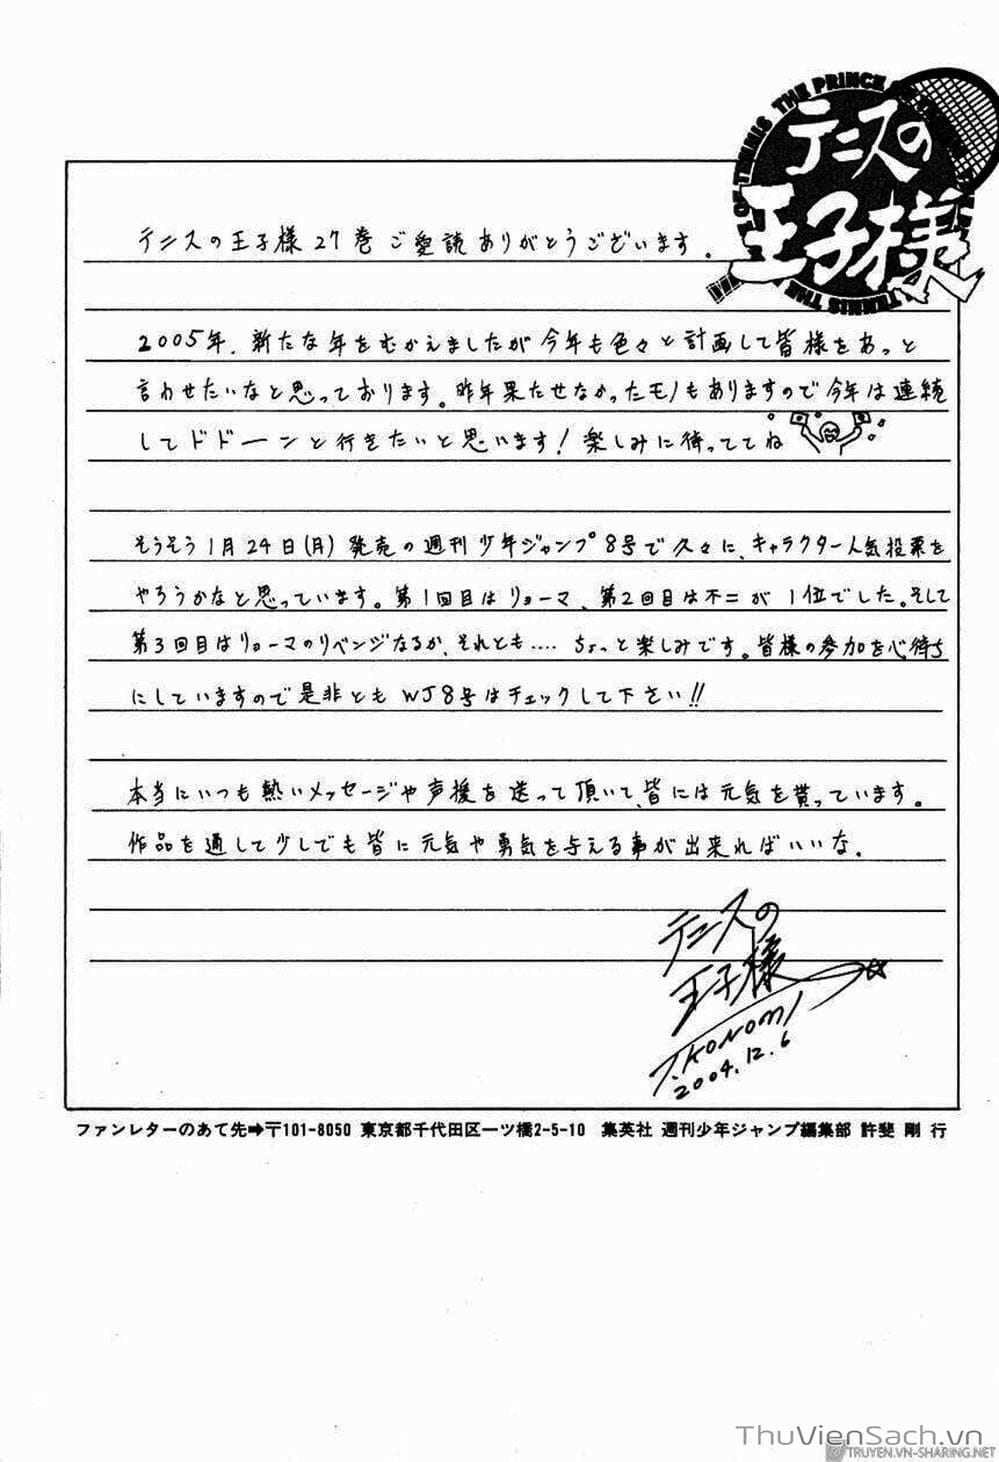 THE PRINCE OF TENNIS THE PRINCE OF TENNIS
テニスの
王子様
テニスの王子様27巻ご愛読ありがとうございます。
2005年、新たな年をむかえましたが今年も色々と計画して皆様をあっと
言わせたいなと思っております。昨年果たせなかったモノもありますので今年は連続
してドドーンと行きたいと思います!楽しみに待っててね
そうそう1月24日(月)発売の週刊少年ジャンプ8号で久々に、キャラクター人気投票を
やろうかなと思っています。第1回目はリョーマ、第2回目は不二が1位でした。そして
第3回目はリョーマのリベンジなるか、それとも‥‥ちょっと楽しみです。皆様の参加を心待ち
にしていますので是非ともWJ8号はチェックして下さい!!
本当にいつも熱いメッセージや声援を送って頂いて、皆には元気を貰っています。
作品を通して少しでも皆に元気や勇気を与える事が出来ればいいな。
テニスの
王子様
T.KONOMI
2004.12.6
ファンレターのあて先➡〒101-8050 東京都千代田区一ツ橋2-5-10 集英社 週刊少年ジャンプ編集部 許斐 剛 行
ThuVienSach.vn
TRUYEN.VN-SHARING.NET